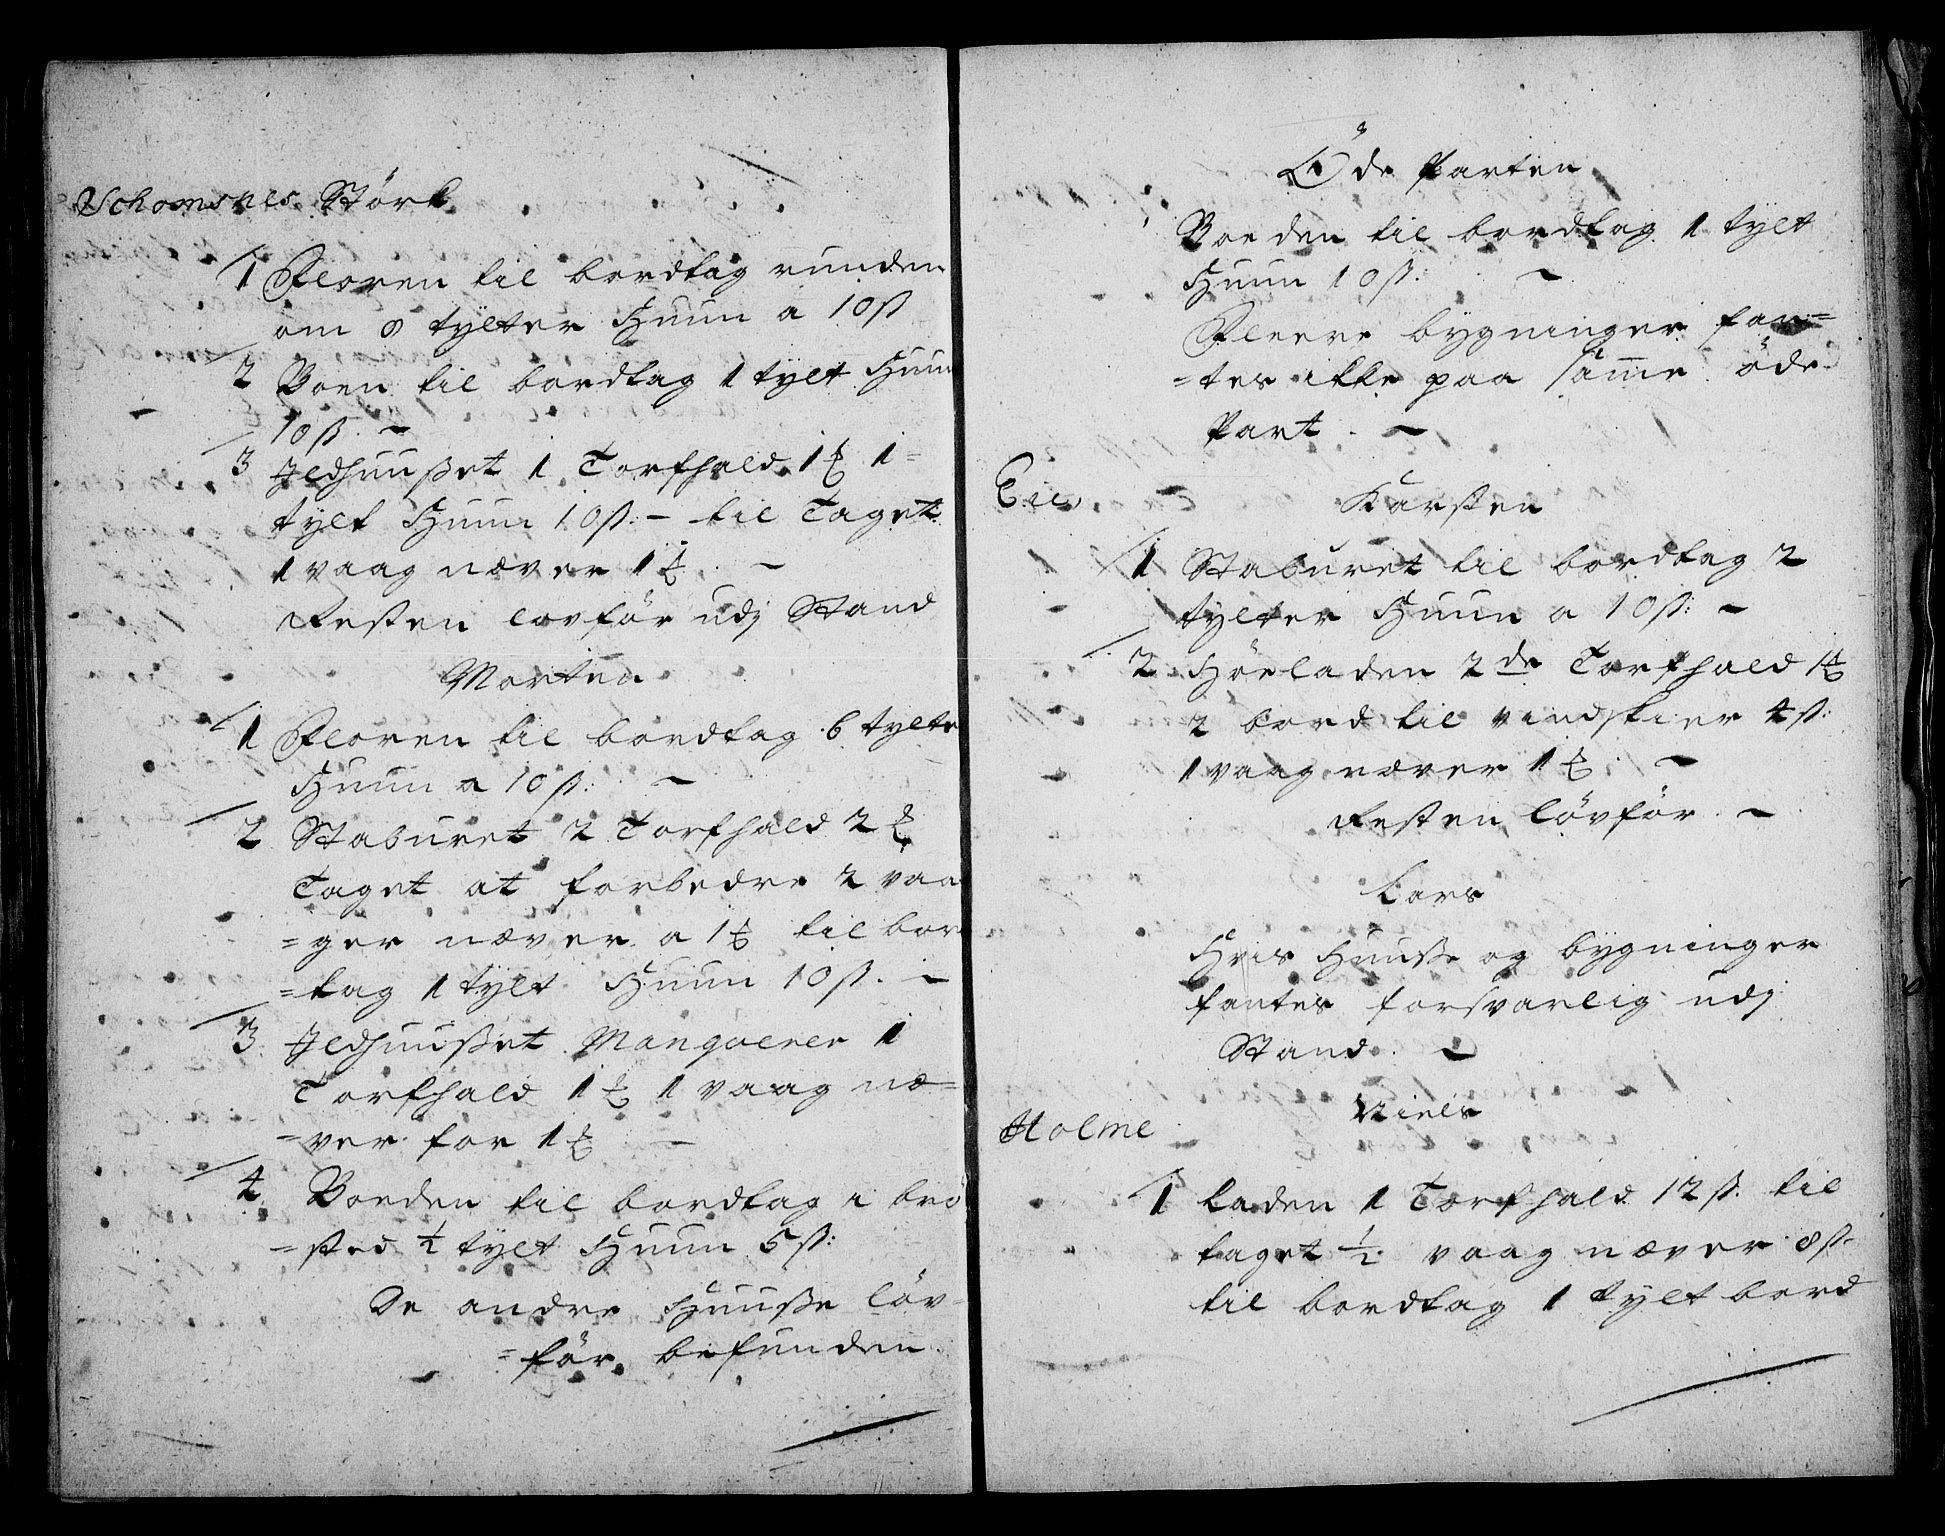 Schomsnes Størk
1 Floren til bordtag runden
om 8 tylter Huun a 10 ß
2 Boen til bordtag 1 tylt Huun
10 ß. –
3 Jldhuußet 1 Torfhald 1 ₰ 1 =
tylt Huun 10 ß: – til Taget
1 vaag næver 1 ₰. –
Resten lovför udj Stand
Morten
1 Floren til bordtag 6 tylter
Huun a 10 ß: –
2 Staburet 2 Torfhald 2 ₰
Taget at forbedre 2 vaa
=ger næver a 1 ₰ til bor
=tag 1 tylt Huun 10 ß. –
3 Jldhuußet Manqverer 1
Torfhald 1 ₰ 1 vaag næ=
=ver for 1 ₰ –
4 Boeden til bordtag i brö
=sted ½ tylt Huun 5 ß:
De andre Huuße löv=
=för befunden.
Öde Parten
Boeden til bordtag 1 tylt
Huun 10 ß: –
Fleere bygninger fan=
=tes ikke paa samme öde
Part. –
Eie Karsten
1 Staburet til bordtag 2
tylter Huun a 10 ß: –
2 Höeladen 2de Torfhald 1 ₰
2 bord til vindskier 4 ß:
1 vaag næver 1 ₰. –
Resten lövför. –
Lars
Hvis Huuße og bygninger
fantes forsvarlig udj
Stand. –
Holme Niels
1 Laden 1 Torfhald 12 ß. til
taget ½ vaag næver 8 ß
til bordtag 1 tylt bord